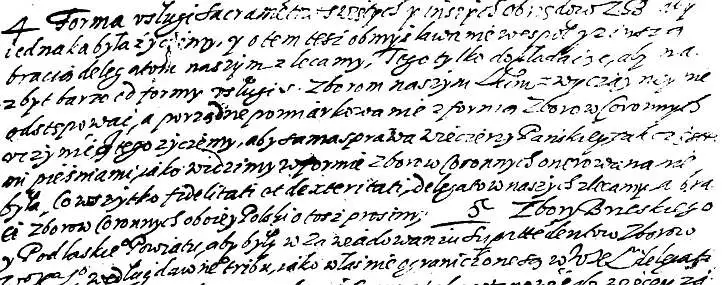 4 Forma usługi Sacramentow świętych y inszych obrządow ZB aby
iednaka była życzemy, y o tem też obmyśławanie wespoł z inszą
bracią delegatom naszym zlecamy, Tego tylko dopladaiąc, aby na
zbyt barzo od formy usługi S. Zborom naszym Lkim zwyczayney nie
odstępować, a porządne pomiarkowanie z formą Zborow Coronnych
uczynić tego życzemy, aby sama sprawa Wieczerzy Pańskiey tak
mi pieśniami, iako widzimy w formie Zborow Coronnych onerowana nie
była, Co wszytko fidelitati et dexteritati, delegatow naszych zlecamy a bra
ci Zborow Coronnych oboiey Polski o toż prosimy. 5 Zbory Brzeskiego
y Podlaskie° Powiatu, aby były w zawiadowaniu Superattendentow Zborow
według dawne° tribu, iako właśnie ograniczone są w Xe L delegati